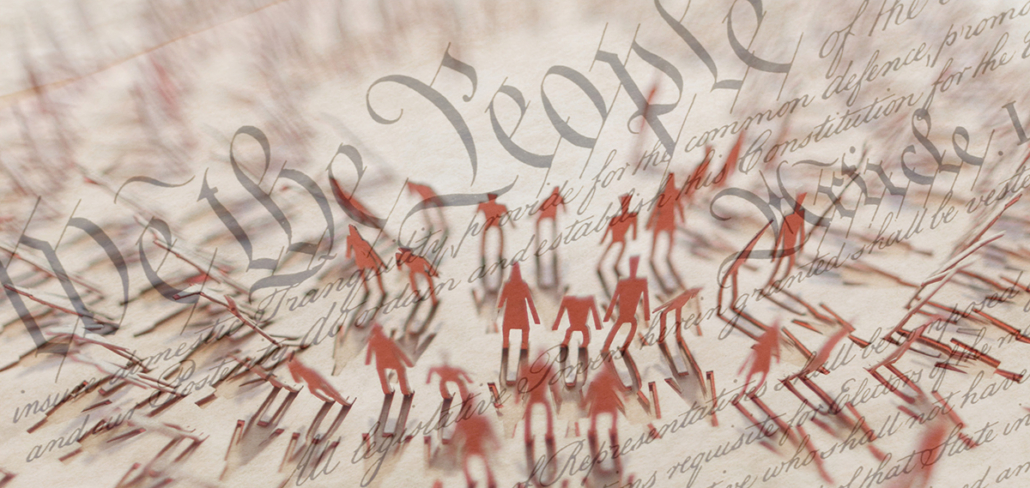 We the People of the
insure domestic Tranquility, provide for the common defence, promo
and our Posterity, do ordain and establish this Constitution for the
Article. I
All legislative Powers herein granted shall be vest
of Representatives shall be composed
requisite for Electors of the
who shall not hav
of that State in